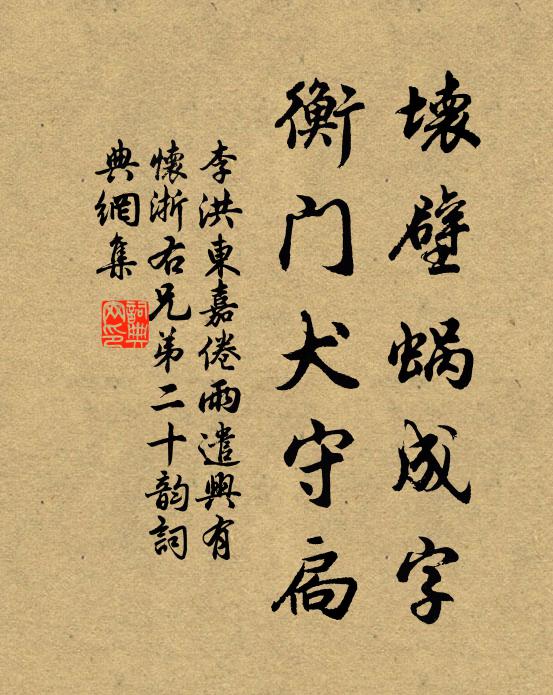 壞壁蜗成字
衡門犬守扃
李洪東嘉倦雨遣興有
懷浙右兄弟二十韵詞
典網集
詞典
网印